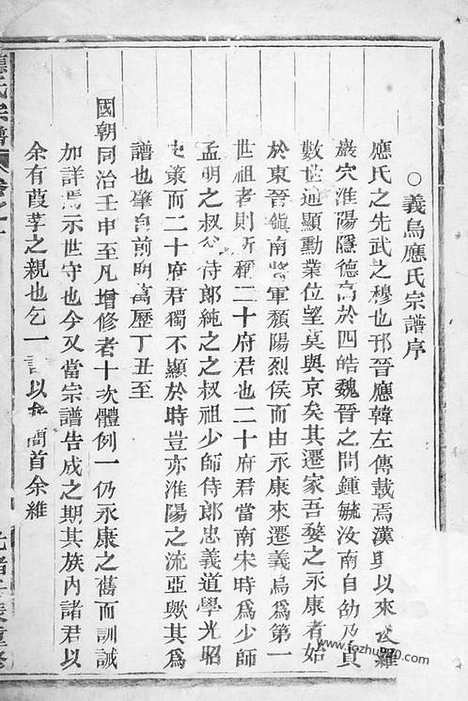 ○義烏應氏宗譜序
應氏之先武之穆也邗晉應韓左傳載焉漢興以來 羅
巖穴淮陽隱德高於四皓魏晉之間鍾毓汝南自劭乃貞
數世通顯勳業位望莫與京矣其遷家吾婺之永康者始
於東晉鎭南將軍頽陽烈侯而由永康來遷義烏爲第一
世祖者則所稱二十府君也二十府君當南宋時爲少師
孟明之叔父侍郎純之之叔祖少師侍郎忠義道學光昭
史策而二十府君獨不顯於時豈亦淮陽之流亞歟其爲
譜也肇自前明萬歷丁丑至
國朝同治壬申至凡增修者十次體例一仍永康之舊而訓誡
加詳焉示世守也今又當宗譜告成之期其族內諸君以
余有葭莩之親也乞一言以 簡首余維
應氏宗譜
卷之一
光緒 重修
www.fozhu920.com